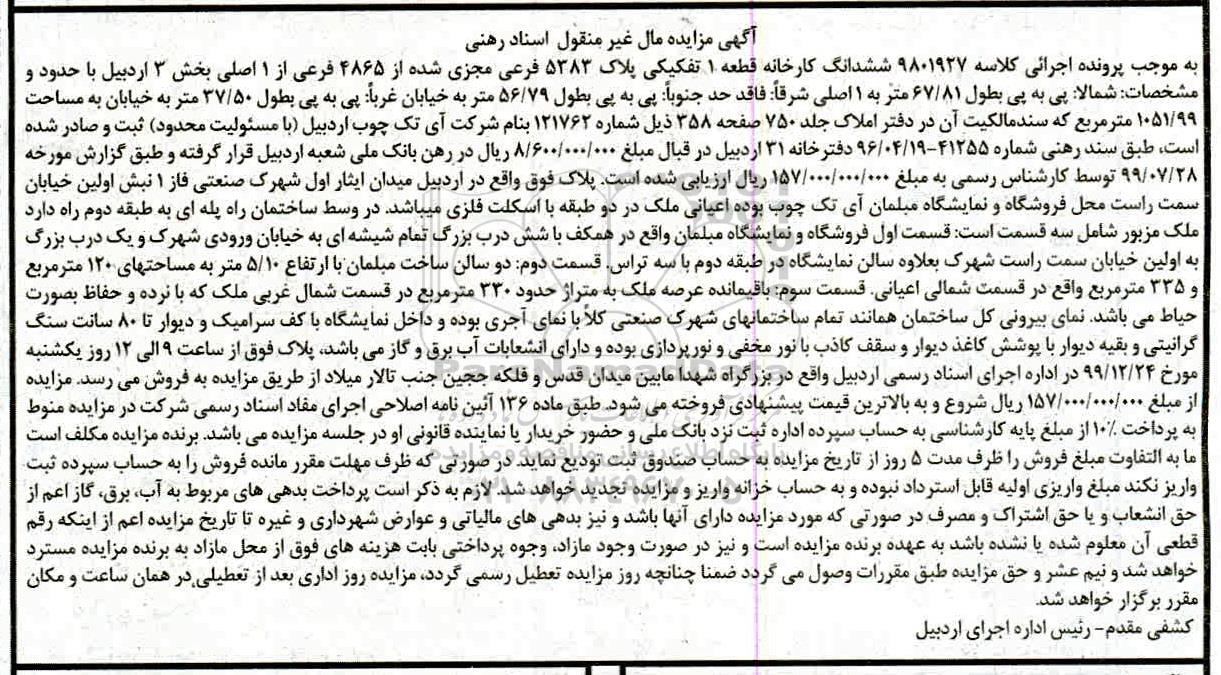 آگهی مزایده مال غیر منقول اسناد رهنی
به موجب پرونده اجرائی کلاسه ۹۸۰۱۹۲۷ ششدانگ کارخانه قطعه ۱ تفکیکی پلاک ۵۳۸۳ فرعی مجزی شده از ۴۸۶۵ فرعی از ۱ اصلی بخش ۳ اردبیل با حدود و
مشخصات: شمالا: پی به پی بطول ۶۷/۸۱ متر به ۱ اصلی شرقاً: فاقد حد جنوباً: پی به پی بطول ۵۶/۷۹ متر به خیابان غرباً: پی به پی بطول ۳۷/۵۰ متر به خیابان به مساحت
۱۰۵۱/۹۹ مترمربع که سندمالکیت آن در دفتر املاک جلد ۷۵۰ صفحه ۳۵۸ ذیل شماره ۱۲۱۷۶۲ بنام شرکت آی تک چوب اردبیل (با مسئولیت محدود) ثبت و صادر شده
است، طبق سند رهنی شماره ۴۱۲۵۵-۹۶/۰۴/۱۹ دفترخانه ۳۱ اردبیل در قبال مبلغ ۸/۶۰۰/۰۰۰/۰۰۰ ریال در رهن بانک ملی شعبه اردبیل قرار گرفته و طبق گزارش مورخه
۹۹/۰۷/۲۸ توسط کارشناس رسمی به مبلغ ۱۵۷/۰۰۰/۰۰۰/۰۰۰ ریال ارزیابی شده است. پلاک فوق واقع در اردبیل میدان ایثار اول شهرک صنعتی فاز ۱ نبش اولین خیابان
سمت راست محل فروشگاه و نمایشگاه مبلمان آی تک چوب بوده اعیانی ملک در دو طبقه با اسکلت فلزی میباشد. در وسط ساختمان راه پله ای به طبقه دوم راه دارد
ملک مزبور شامل سه قسمت است: قسمت اول فروشگاه و نمایشگاه مبلمان واقع در همکف با شش درب بزرگ تمام شیشه ای به خیابان ورودی شهرک و یک درب بزرگ
به اولین خیابان سمت راست شهرک بعلاوه سالن نمایشگاه در طبقه دوم با سه تراس. قسمت دوم: دو سالن ساخت مبلمان با ارتفاع ۵/۱۰ متر به مساحتهای ۱۲۰ مترمربع
و ۳۳۵ مترمربع واقع در قسمت شمالی اعیانی. قسمت سوم: باقیمانده عرصه ملک به متراژ حدود ۳۳۰ مترمربع در قسمت شمال غربی ملک که با نرده و حفاظ بصورت
حیاط می باشد. نمای بیرونی کل ساختمان همانند تمام ساختمانهای شهرک صنعتی کلاً با نمای آجری بوده و داخل نمایشگاه با کف سرامیک و دیوار تا ۸۰ سانت سنگ
گرانیتی و بقیه دیوار با پوشش کاغذ دیوار و سقف کاذب با نور مخفی و نورپردازی بوده و دارای انشعابات آب برق و گاز می باشد، پلاک فوق از ساعت ۹ الی ۱۲ روز یکشنبه
مورخ ۹۹/۱۲/۲۴ در اداره اجرای اسناد رسمی اردبیل واقع در بزرگراه شهدا مابین میدان قدس و فلکه ججین جنب تالار میلاد از طریق مزایده به فروش می رسد. مزایده
از مبلغ ۱۵۷/۰۰۰/۰۰۰/۰۰۰ ریال شروع و به بالاترین قیمت پیشنهادی فروخته می شود. طبق ماده ۱۳۶ آئین نامه اصلاحی اجرای مفاد اسناد رسمی شرکت در مزایده منوط
به پرداخت ۱۰٪ از مبلغ پایه کارشناسی به حساب سپرده اداره ثبت نزد بانک ملی و حضور خریدار یا نماینده قانونی او در جلسه مزایده می باشد. برنده مزایده مکلف است
ما به التفاوت مبلغ فروش را ظرف مدت ۵ روز از تاریخ مزایده به حساب صندوق ثبت تودیع نماید. در صورتی که ظرف مهلت مقرر مانده فروش را به حساب سپرده ثبت
واریز نکند مبلغ واریزی اولیه قابل استرداد نبوده و به حساب خزانه واریز و مزایده تجدید خواهد شد. لازم به ذکر است پرداخت بدهی های مربوط به آب، برق، گاز اعم از
حق انشعاب و یا حق اشتراک و مصرف در صورتی که مورد مزایده دارای آنها باشد و نیز بدهی های مالیاتی و عوارض شهرداری و غیره تا تاریخ مزایده اعم از اینکه رقم
قطعی آن معلوم شده یا نشده باشد به عهده برنده مزایده است و نیز در صورت وجود مازاد، وجوه پرداختی بابت هزینه های فوق از محل مازاد به برنده مزایده مسترد
خواهد شد و نیم عشر و حق مزایده طبق مقررات وصول می گردد ضمنا چنانچه روز مزایده تعطیل رسمی گردد، مزایده روز اداری بعد از تعطیلی در همان ساعت و مکان
مقرر برگزار خواهد شد.
کشفی مقدم- رئیس اداره اجرای اردبیل